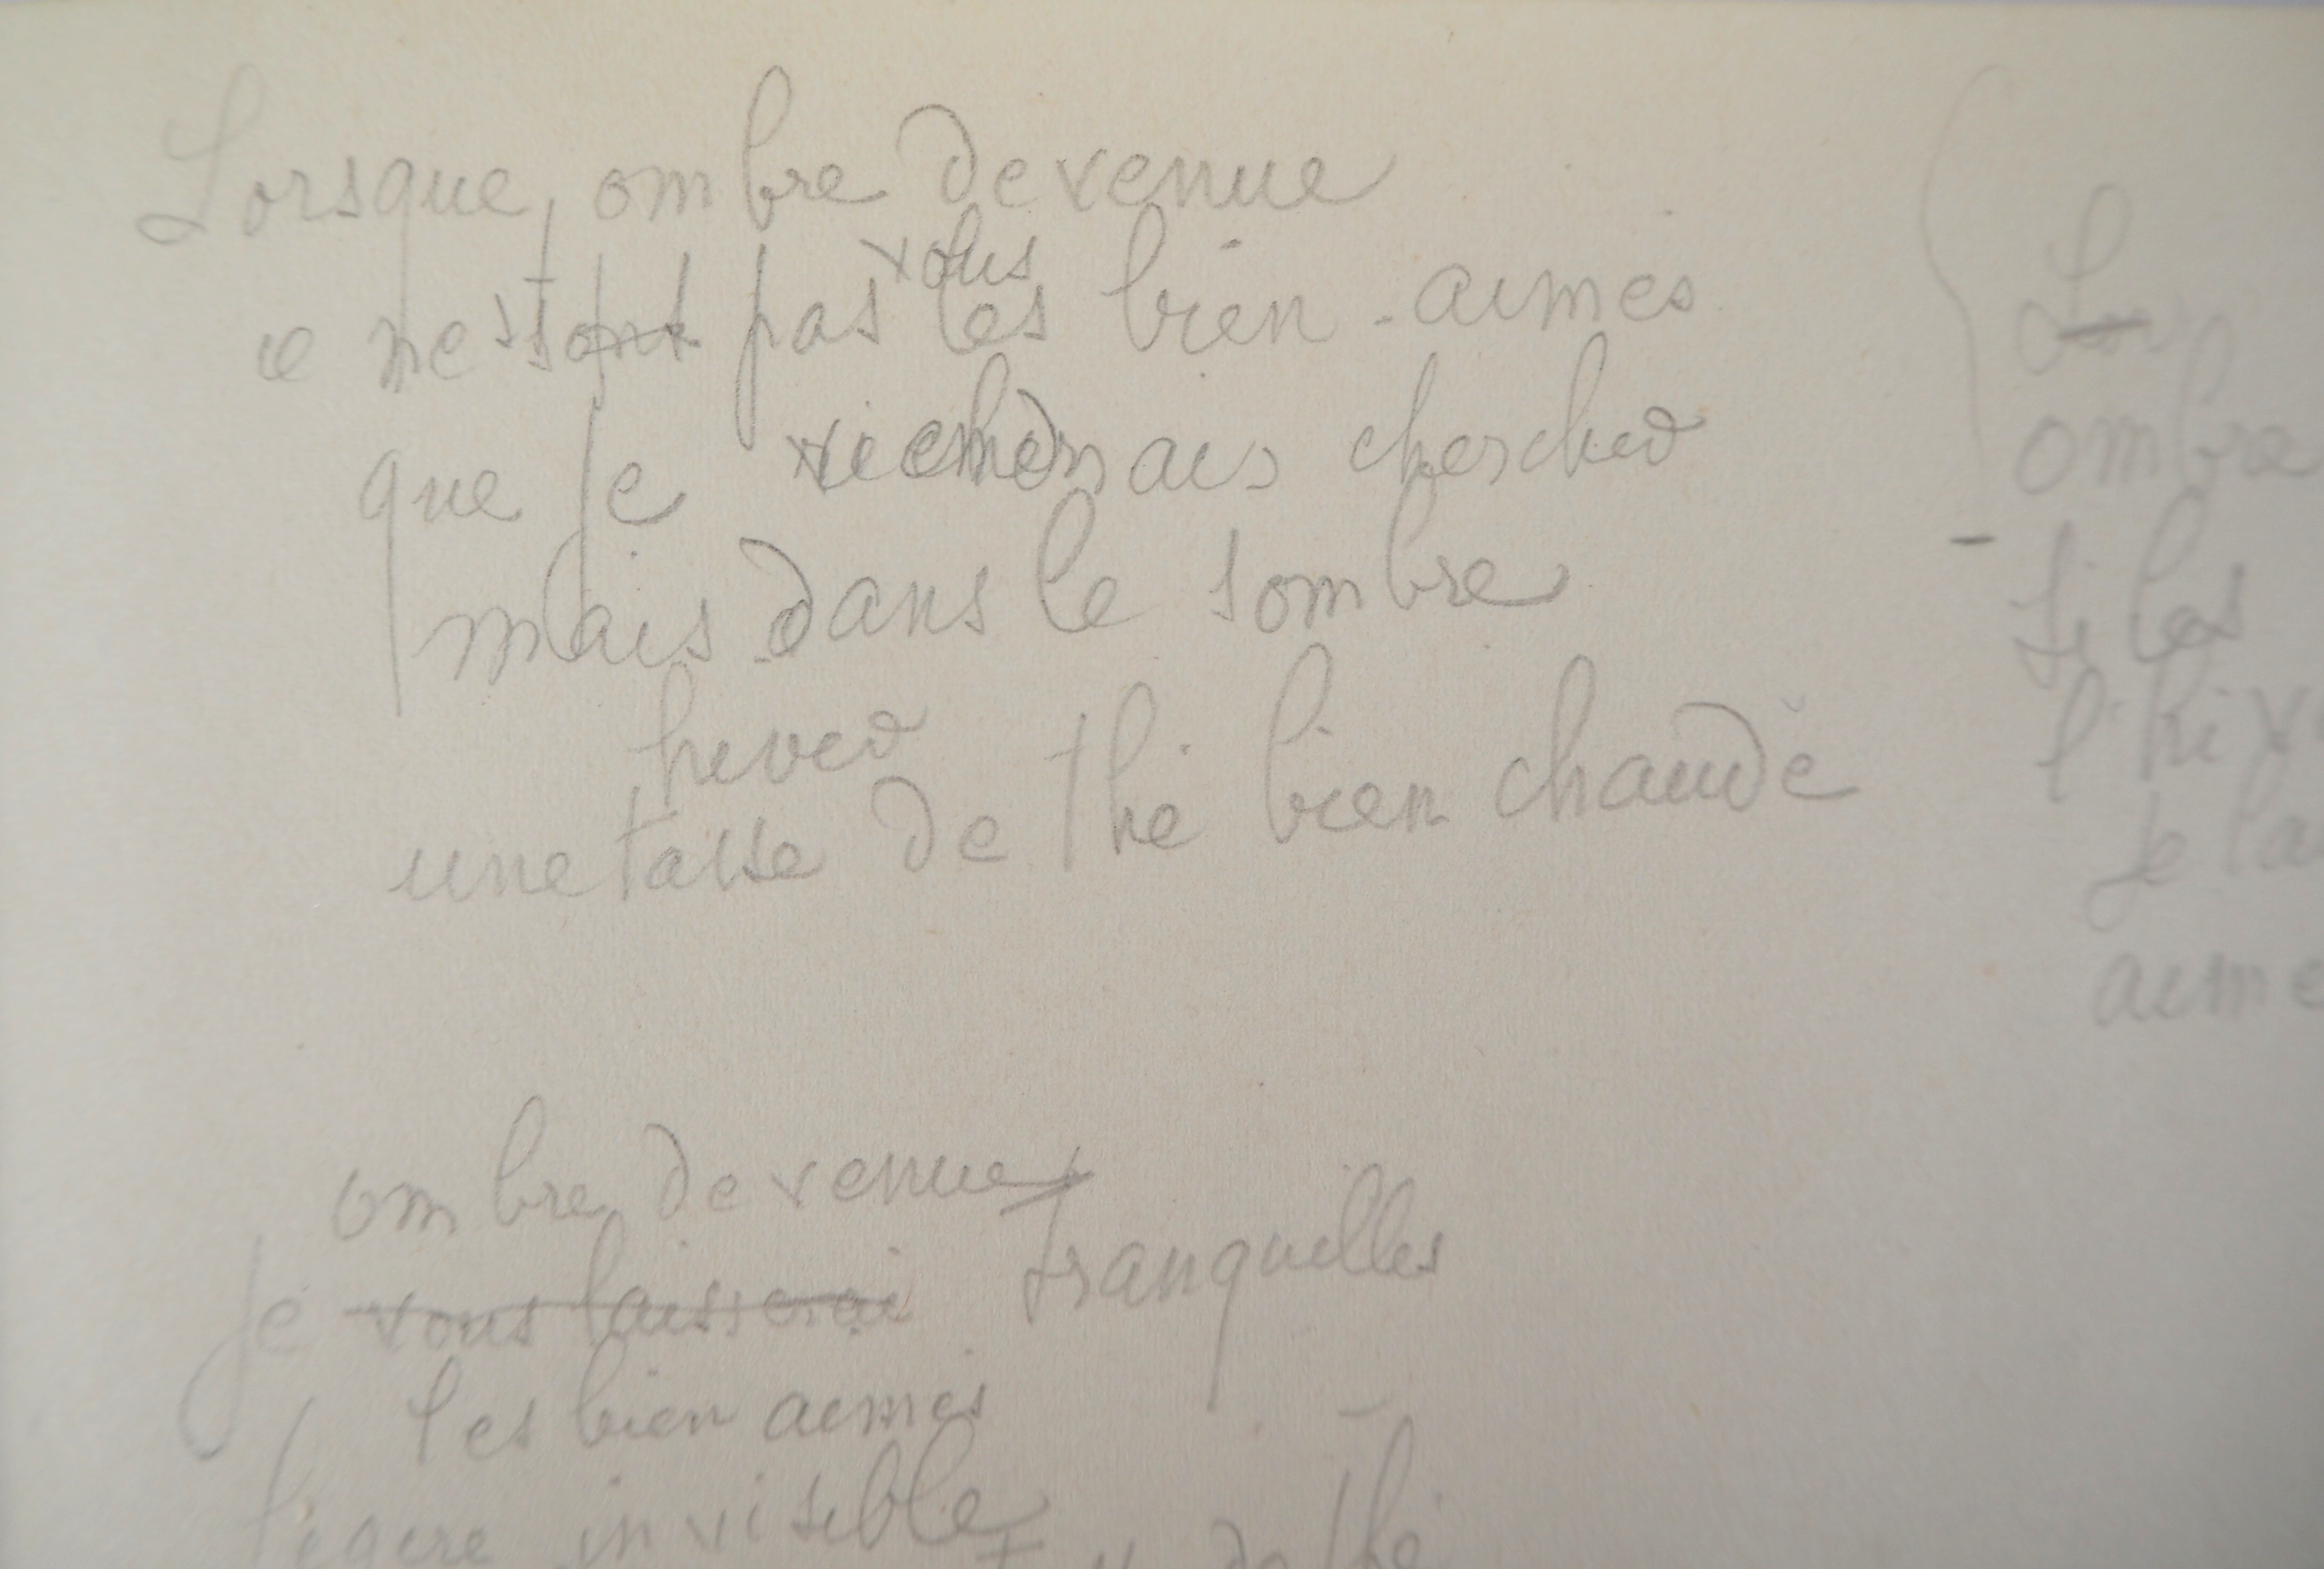 Lorsque, ombre devenue
ce ne sont pas vous les bien-aimés
que je viendrais chercher
mais dans le sombre
hiver
une tasse de thé bien chaude
ombre devenue
Je vous laisserai tranquilles
les bien aimés
légère invisible
de thé
L
ombre
si les
l'hiv
je la
aime